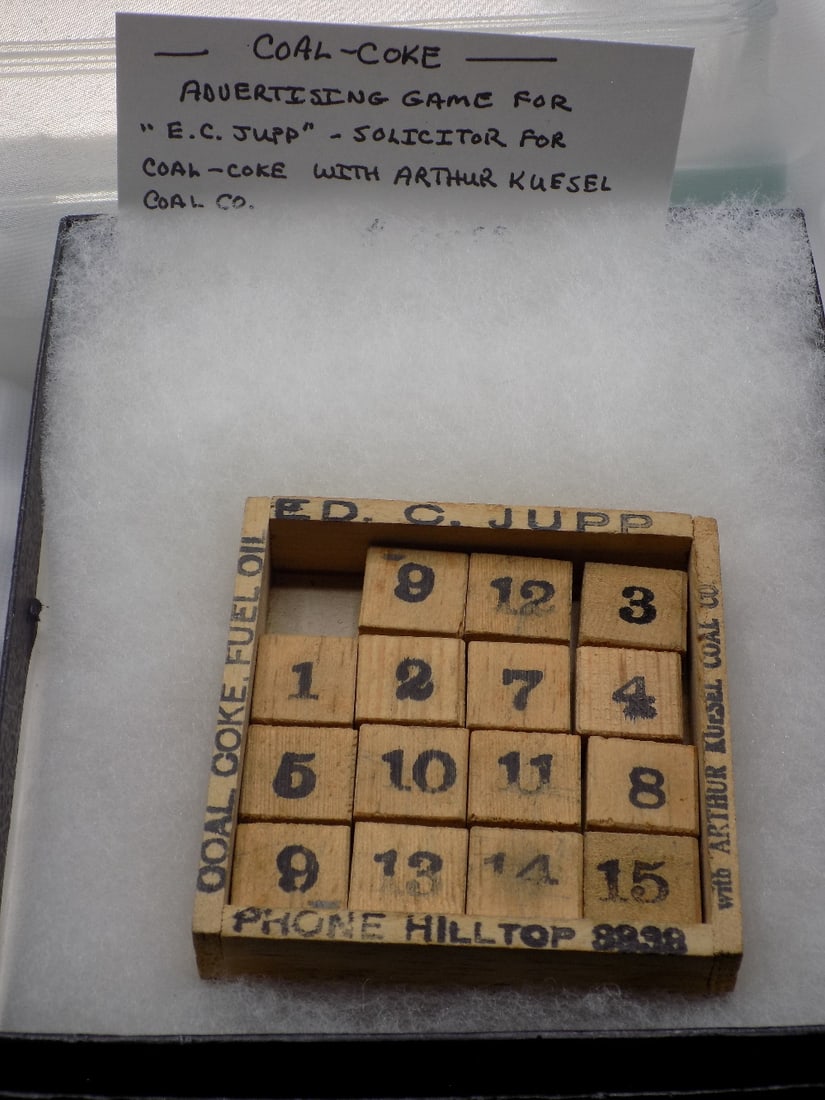 — COAL-COKE —
ADVERTISING GAME FOR
"E.C. JUPP" - SOLICITOR FOR
COAL-COKE WITH ARTHUR KUESEL
COAL CO.
ED. C. JUPP
COAL COKE. FUEL OIL
with ARTHUR KUESEL COAL CO
9 12 3
1 2 7 4
5 10 11 8
9 13 14 15
PHONE HILLTOP